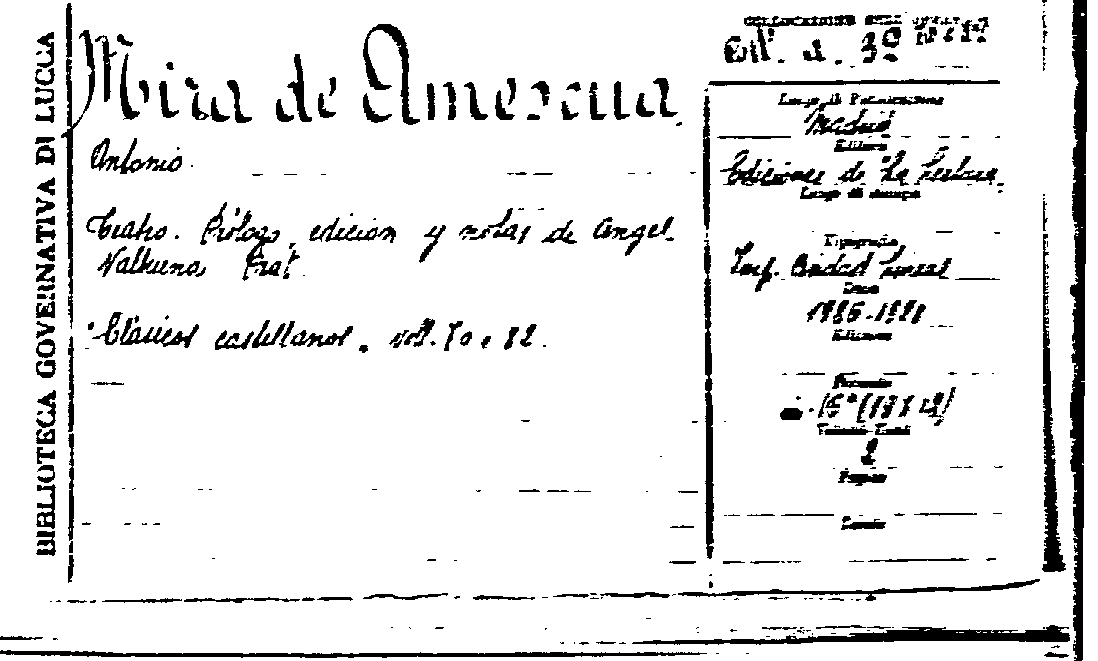 BIBLIOTECA GOVERNATIVA DI LUCCA
Mira de Amescua
Antonio.
Teatro. Prólogo, edicion y notas de Angel
Valbuena Prat
"Clásicos castellanos". voll. 70 e 82.
Luogo di Pubblicazione
Madrid
Editore
Ediciones de "La Lectura"
Luogo di stampa
Tipografia
Imp. Ciudad Lineal
Data
Edizione
Formato
Pagine